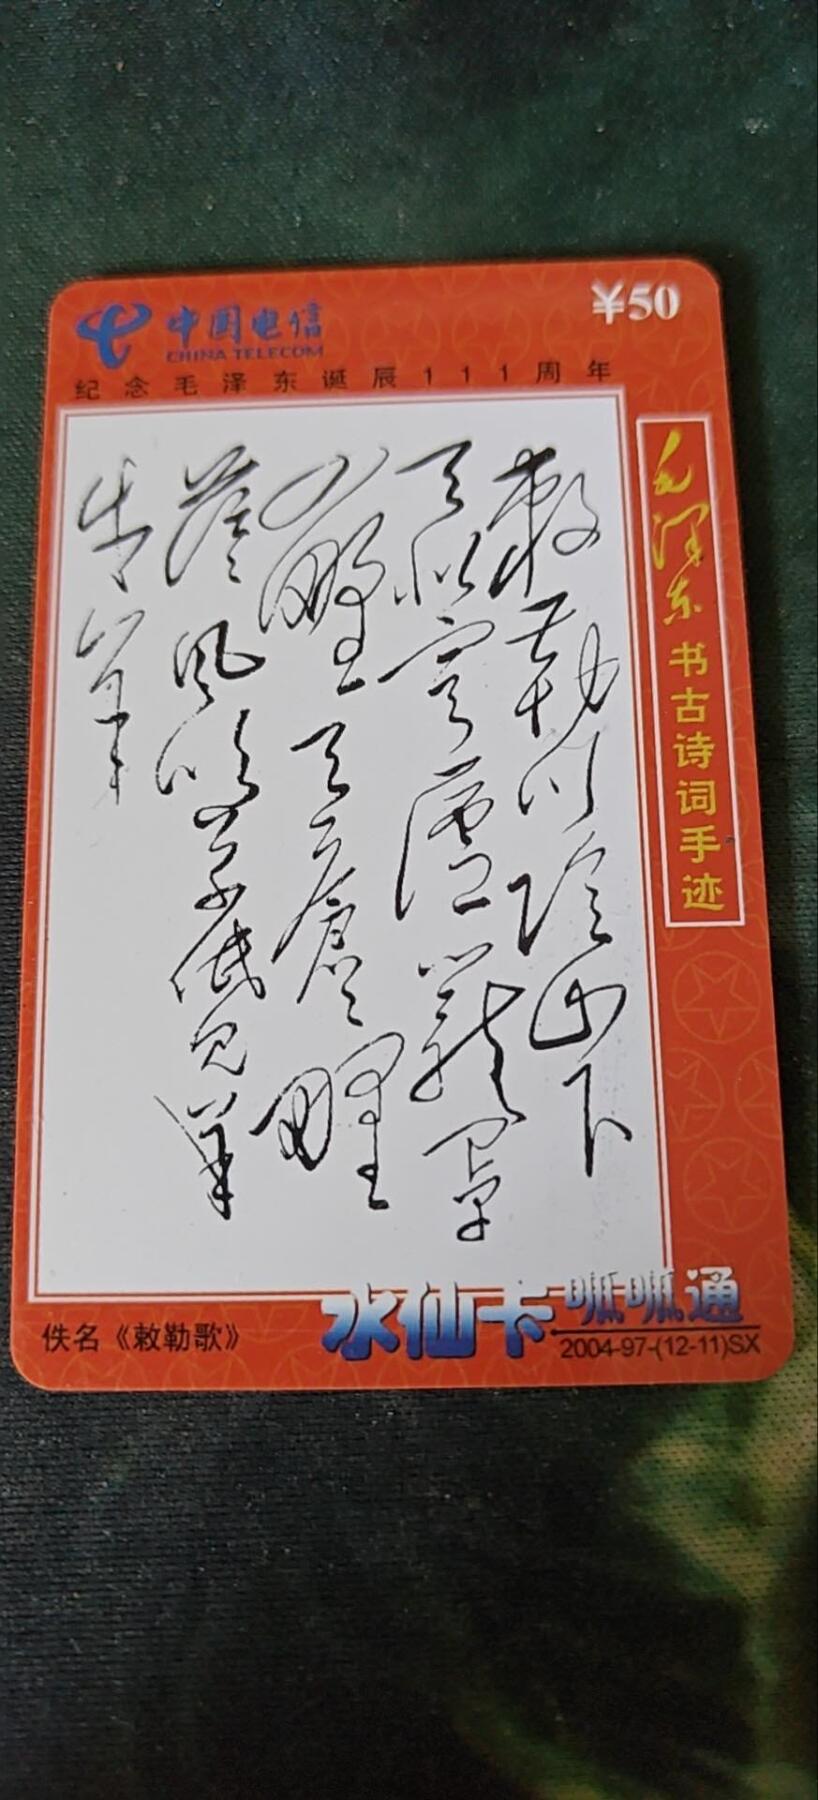 中国电信
CHINA TELECOM
¥50
纪念毛泽东诞辰111周年
毛泽东书古诗词手迹
敕勒川陰山下
天似穹廬籠罩
四野天蒼〻野
茫〻風吹草低見羊
牛羊
佚名《敕勒歌》
水仙卡呱呱通
2004-97-(12-11)SX